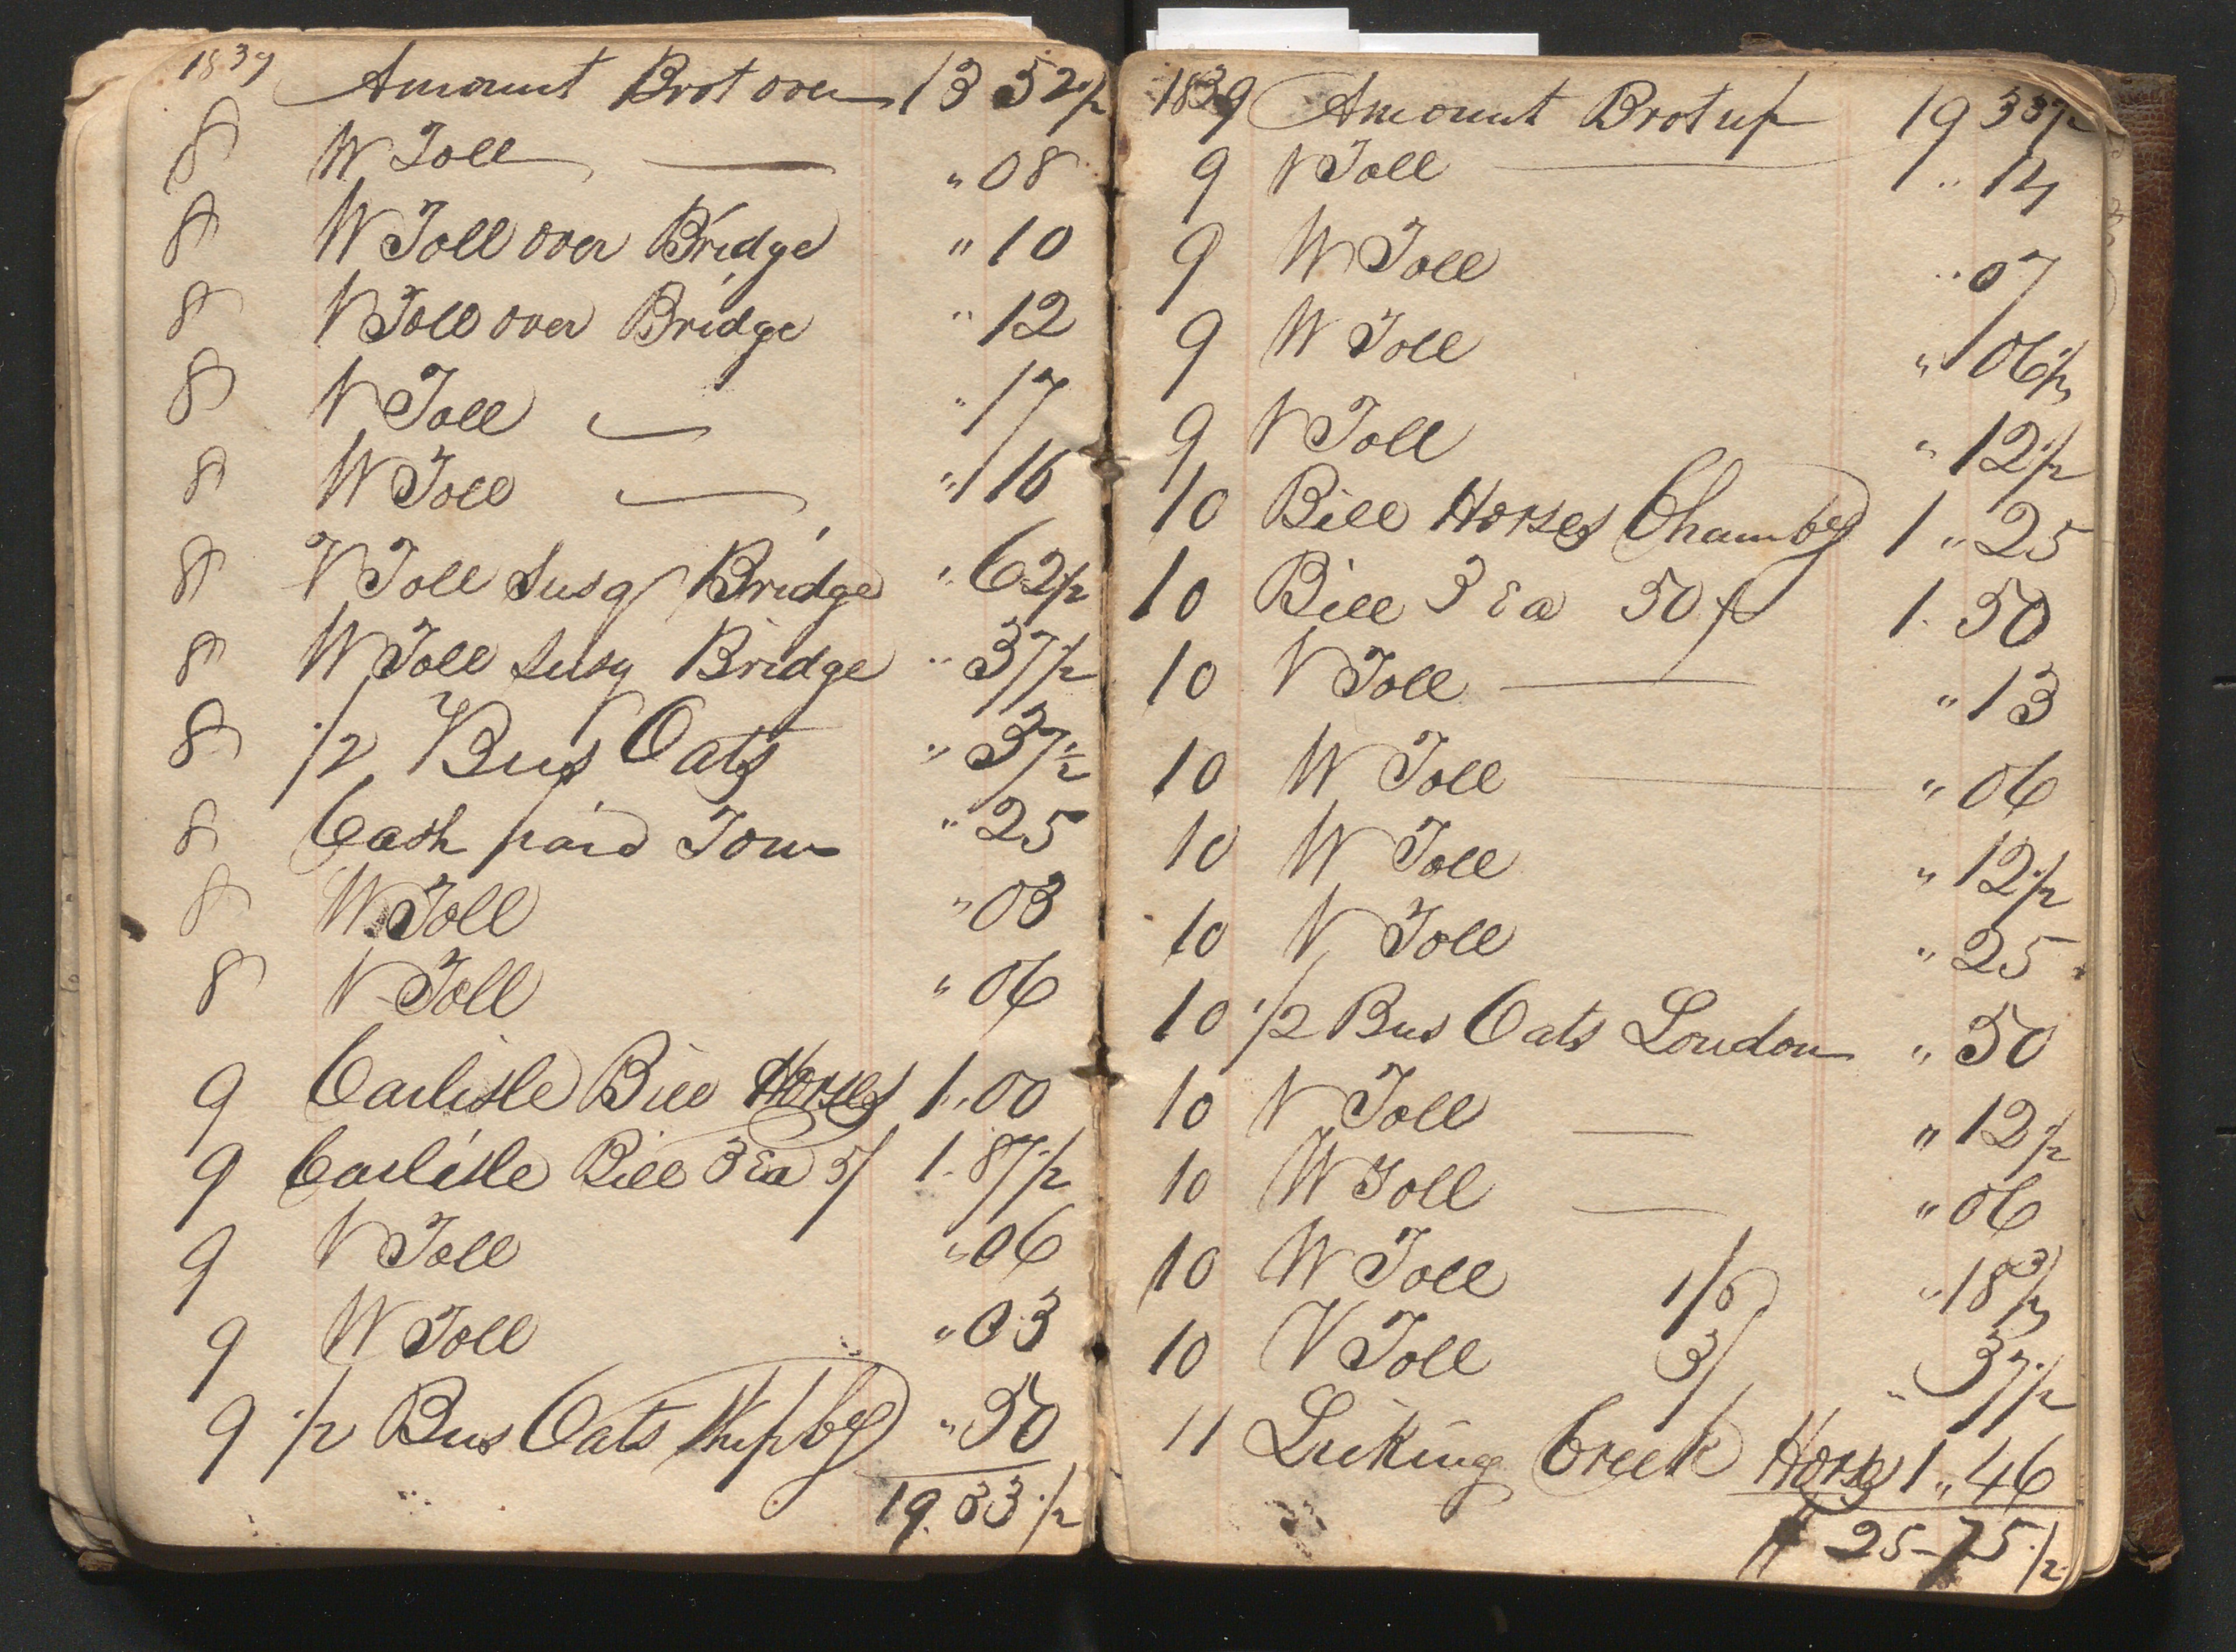 1839 Amount Brot over 13 52 1/2
8 W Toll " 08
8 W Toll over Bridge " 10
8 V Toll over Bridge " 12
8 V Toll " 17
8 W Toll " 16
8 V Toll Susq Bridge " 62 1/2
8 W Toll Susq Bridge " 37 1/2
8 1/2 Bus Oats " 37 1/2
8 Cash paid Tom " 25
8 W Toll " 03
8 V Toll " 06
9 Carlisle Bill Horses 1 " 00
9 Carlisle Bill 3 Ea 5/ 1 . 87 1/2
9 V Toll " 06
9 W Toll " 03
9 1/2 Bus Oats Shipbg " 50
19.33 1/2
1839 Amount Brot up 19 33 1/2
9 V Toll " 14
9 W Toll " 07
9 W Toll " 06 1/2
9 V Toll " 12 1/2
10 Bill Horses Chambg 1 " 25
10 Bill 3 Ea 50 1 . 50
10 V Toll " 13
10 W Toll " 06
10 W Toll " 12 1/2
10 V Toll " 25
10 1/2 Bus Oats Loudon " 50
10 V Toll " 12 1/2
10 W Toll " 06
10 W Toll 1/6 " 18 3/4
10 V Toll 3/ " 37 1/2
11 Licking Creek Horses 1 " 46
25-75 1/2